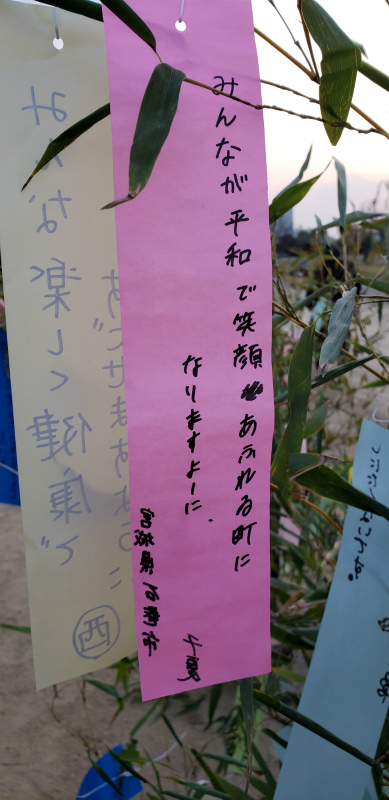 みんなが平和で笑顔あふれる町に
なりますよーに.
宮城県石巻市
千夏
みんな楽しく健康で
すごせますように
西